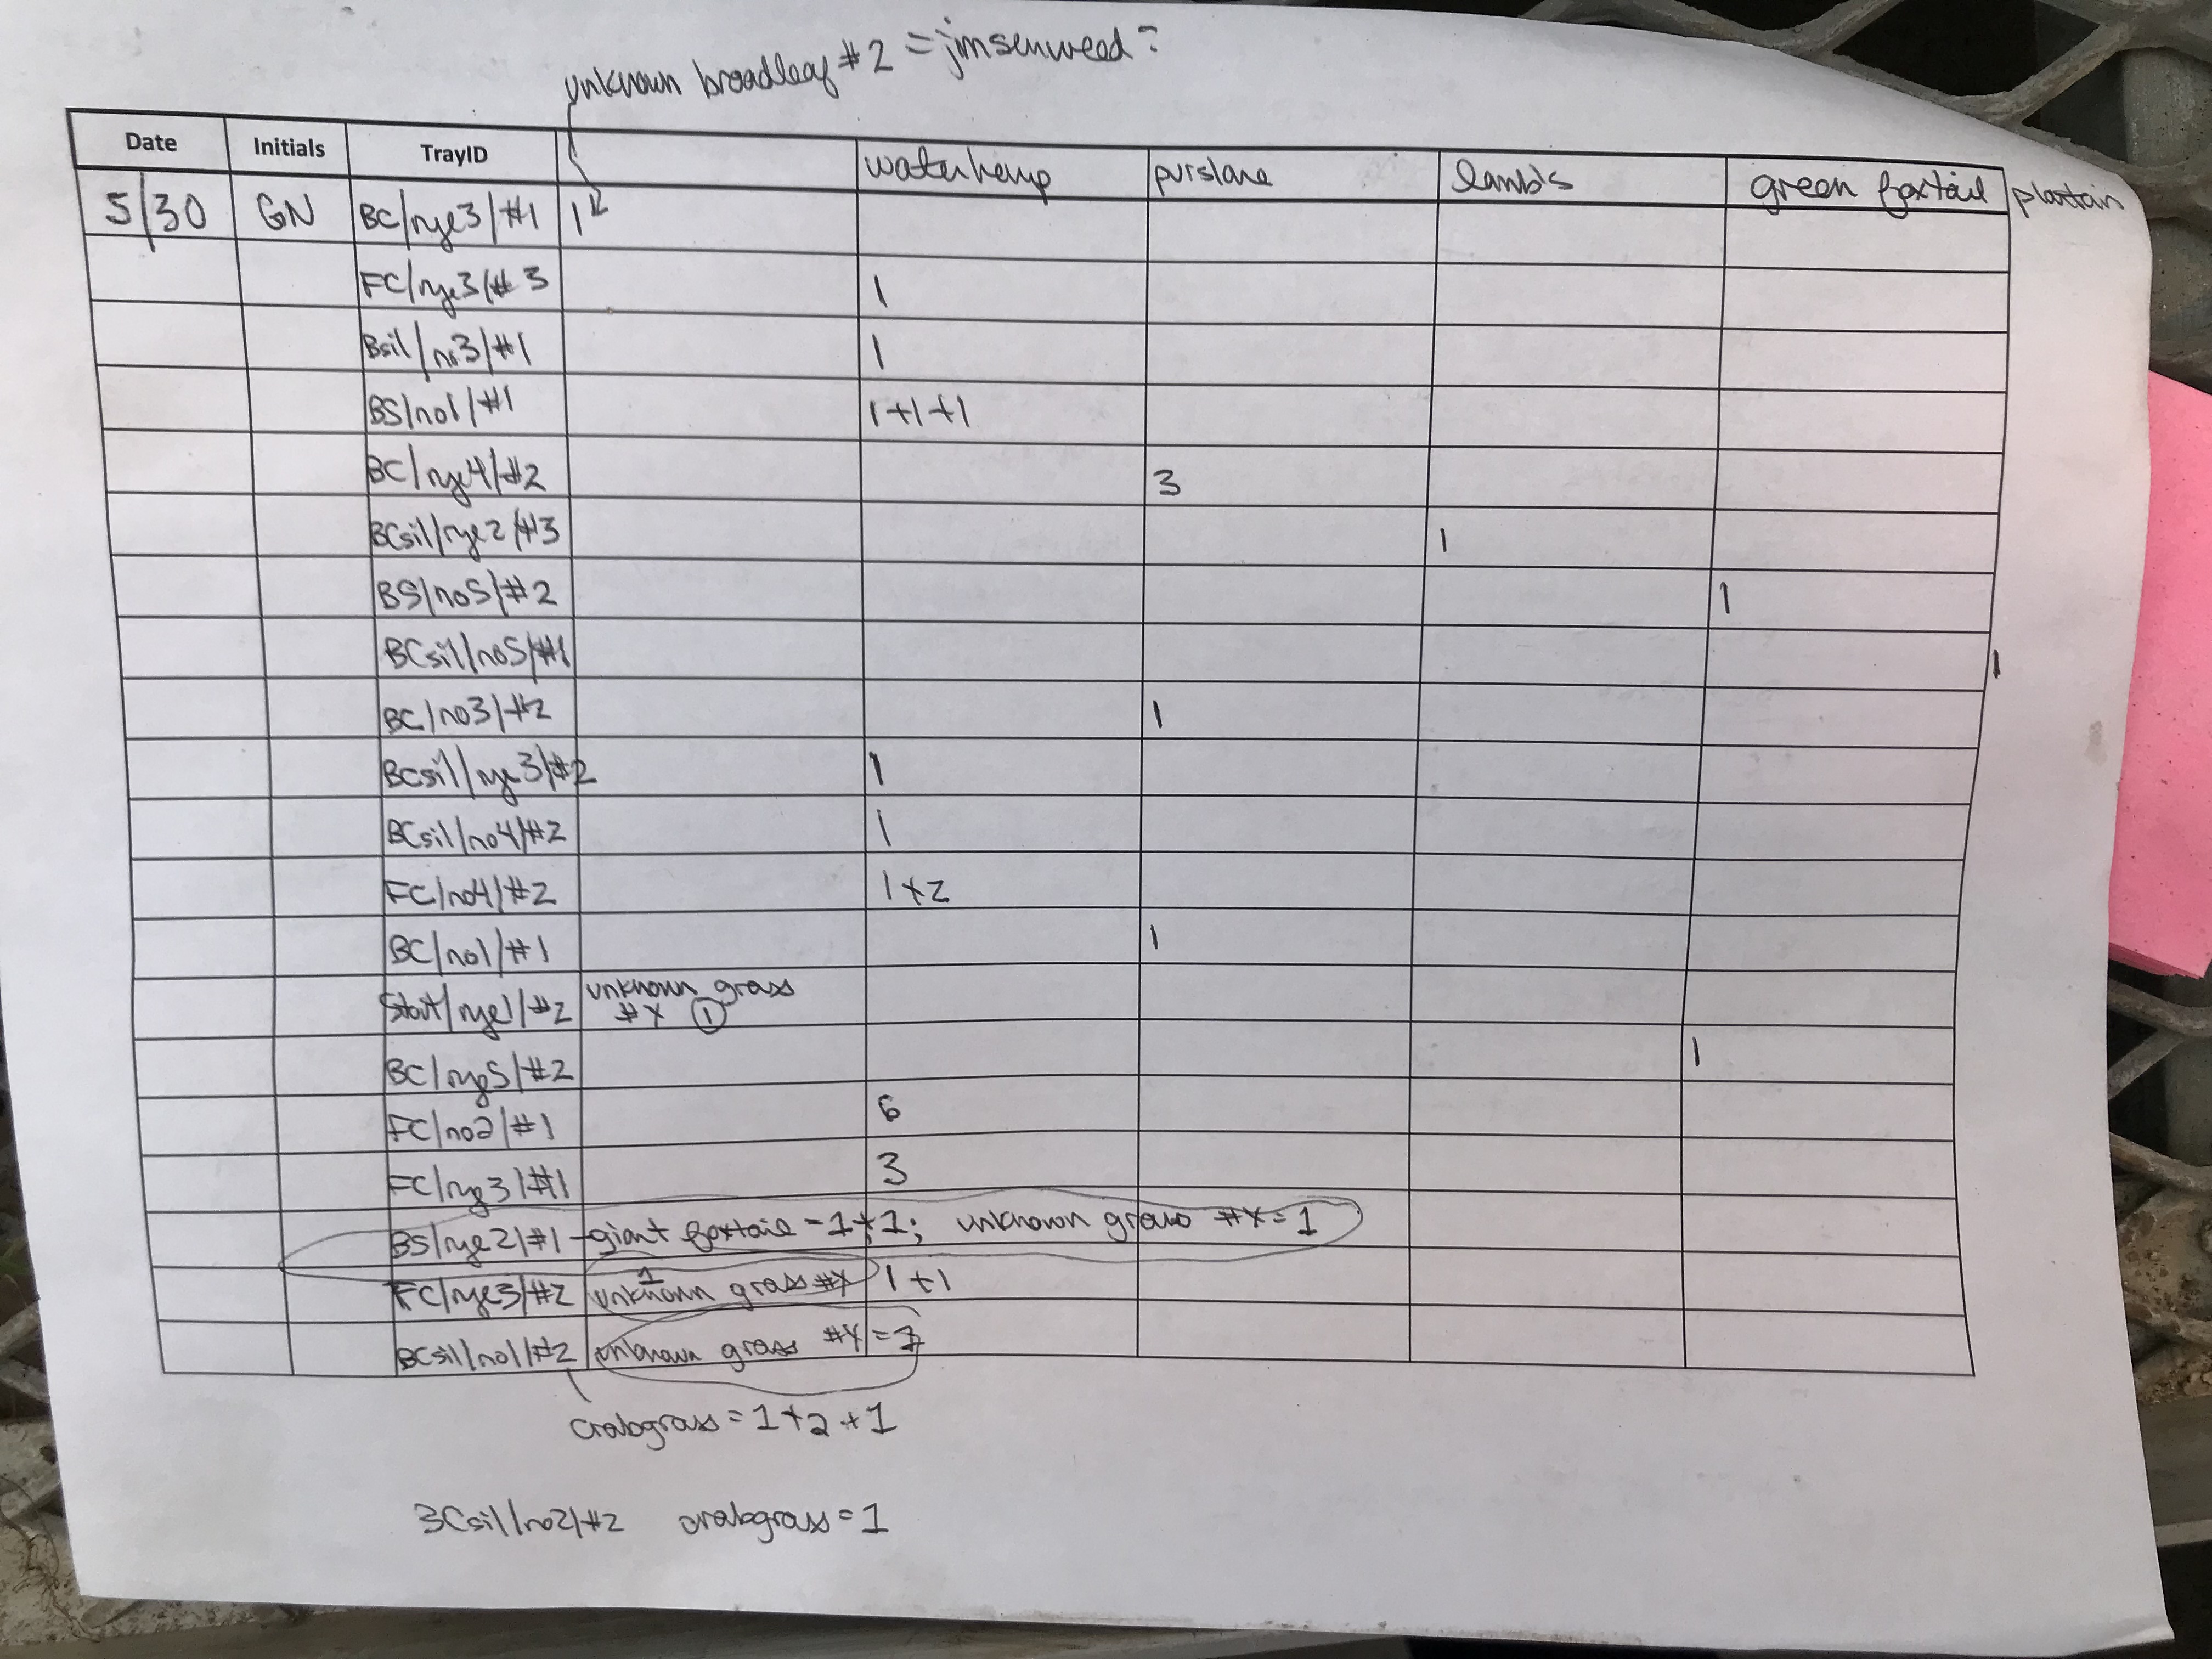 unknown broadleaf #2 = jimsenweed?
Date Initials TrayID waterhemp purslane lambs green foxtail plantain
5/30 GN BC/rye3/#1 1
FC/rye3/#3 1
Bsil/no3/#1 1
BS/no1/#1 1+1+1
BC/rye4/#2 3
BCsil/rye2/#3 1
BS/no5/#2 1
BCsil/no5/#1 1
BC/no3/#2 1
BCsil/rye3/#2 1
BCsil/no4/#2 1
FC/no4/#2 1+2
BC/no1/#1 1
Start/rye1/#2 unknown grass
#X 1
BC/rye5/#2 1
FC/no2/#1 6
FC/rye3/#1 3
BS/rye2/#1 - giant foxtail = 1+1; unknown grass #X = 1
1
FC/rye3/#2 unknown grass #X 1+1
BCsil/no1/#2 unknown grass #Y =
crabgrass = 1+2+1
BCsil/no2/#2 crabgrass = 1